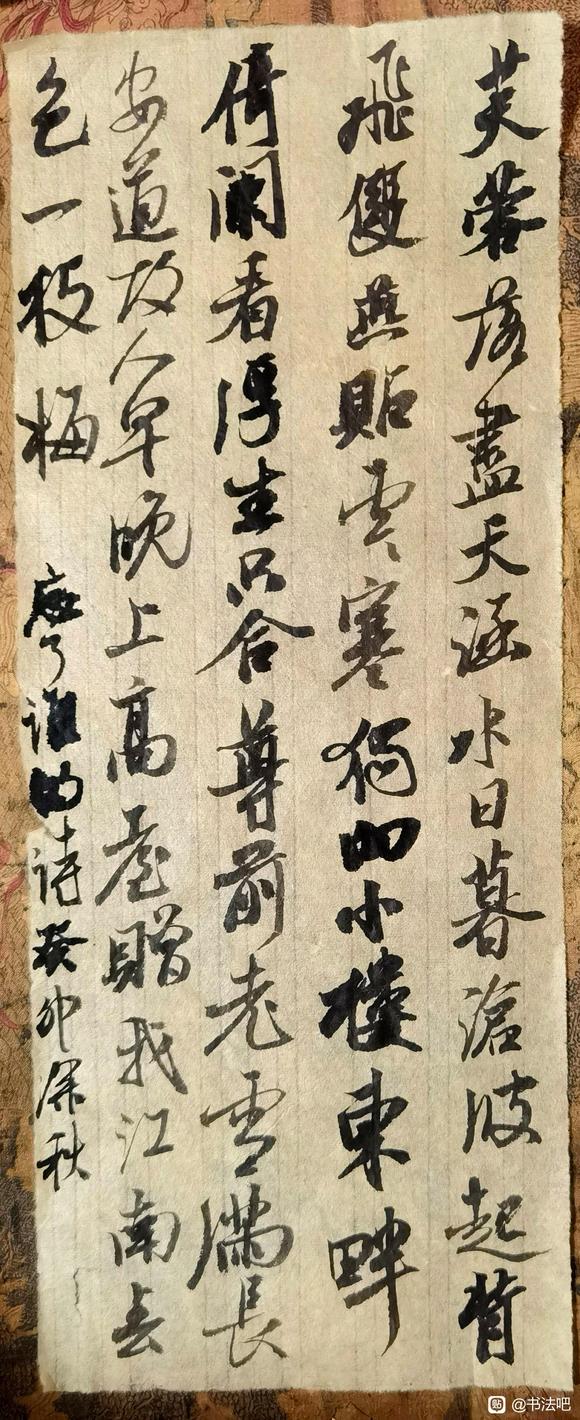 芙蓉落盡天涵水日暮滄波起背
飛雙燕貼雲寒獨向小樓東畔
倚闌看浮生只合尊前老雪滿長
安道故人早晚上高臺贈我江南春
色一枝梅
了誰的詩癸卯深秋
貼 @书法吧